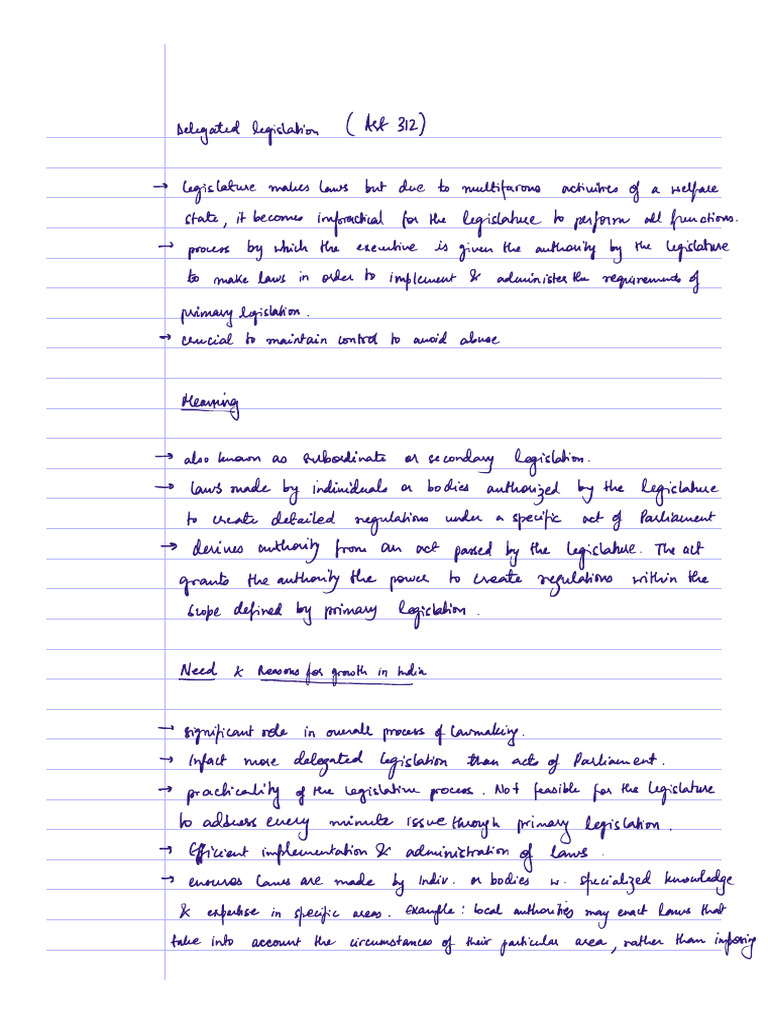 Delegated legislation (Art 312)
→ legislature makes laws but due to multifarous activities of a welfare
state, it becomes impractical for the legislature to perform all functions.
→ process by which the executive is given the authority by the legislature
to make laws in order to implement & administer the requirements of
primary legislation.
→ crucial to maintain control to avoid abuse
Meaning
→ also known as subordinate or secondary legislation.
→ laws made by individuals or bodies authorized by the legislature
to create detailed regulations under a specific act of Parliament
→ derives authority from an act passed by the legislature. The act
grants the authority the power to create regulations within the
scope defined by primary legislation.
Need & Reasons for growth in India
→ significant role in overall process of lawmaking.
→ Infact more delegated legislation than acts of Parliament.
→ practicality of the legislative process. Not feasible for the legislature
to address every minute issue through primary legislation.
→ Efficient implementation & administration of laws.
→ ensures laws are made by Indiv. or bodies w. specialized knowledge
& expertise in specific areas. Example: local authorities may enact laws that
take into account the circumstances of their particular area, rather than imposing